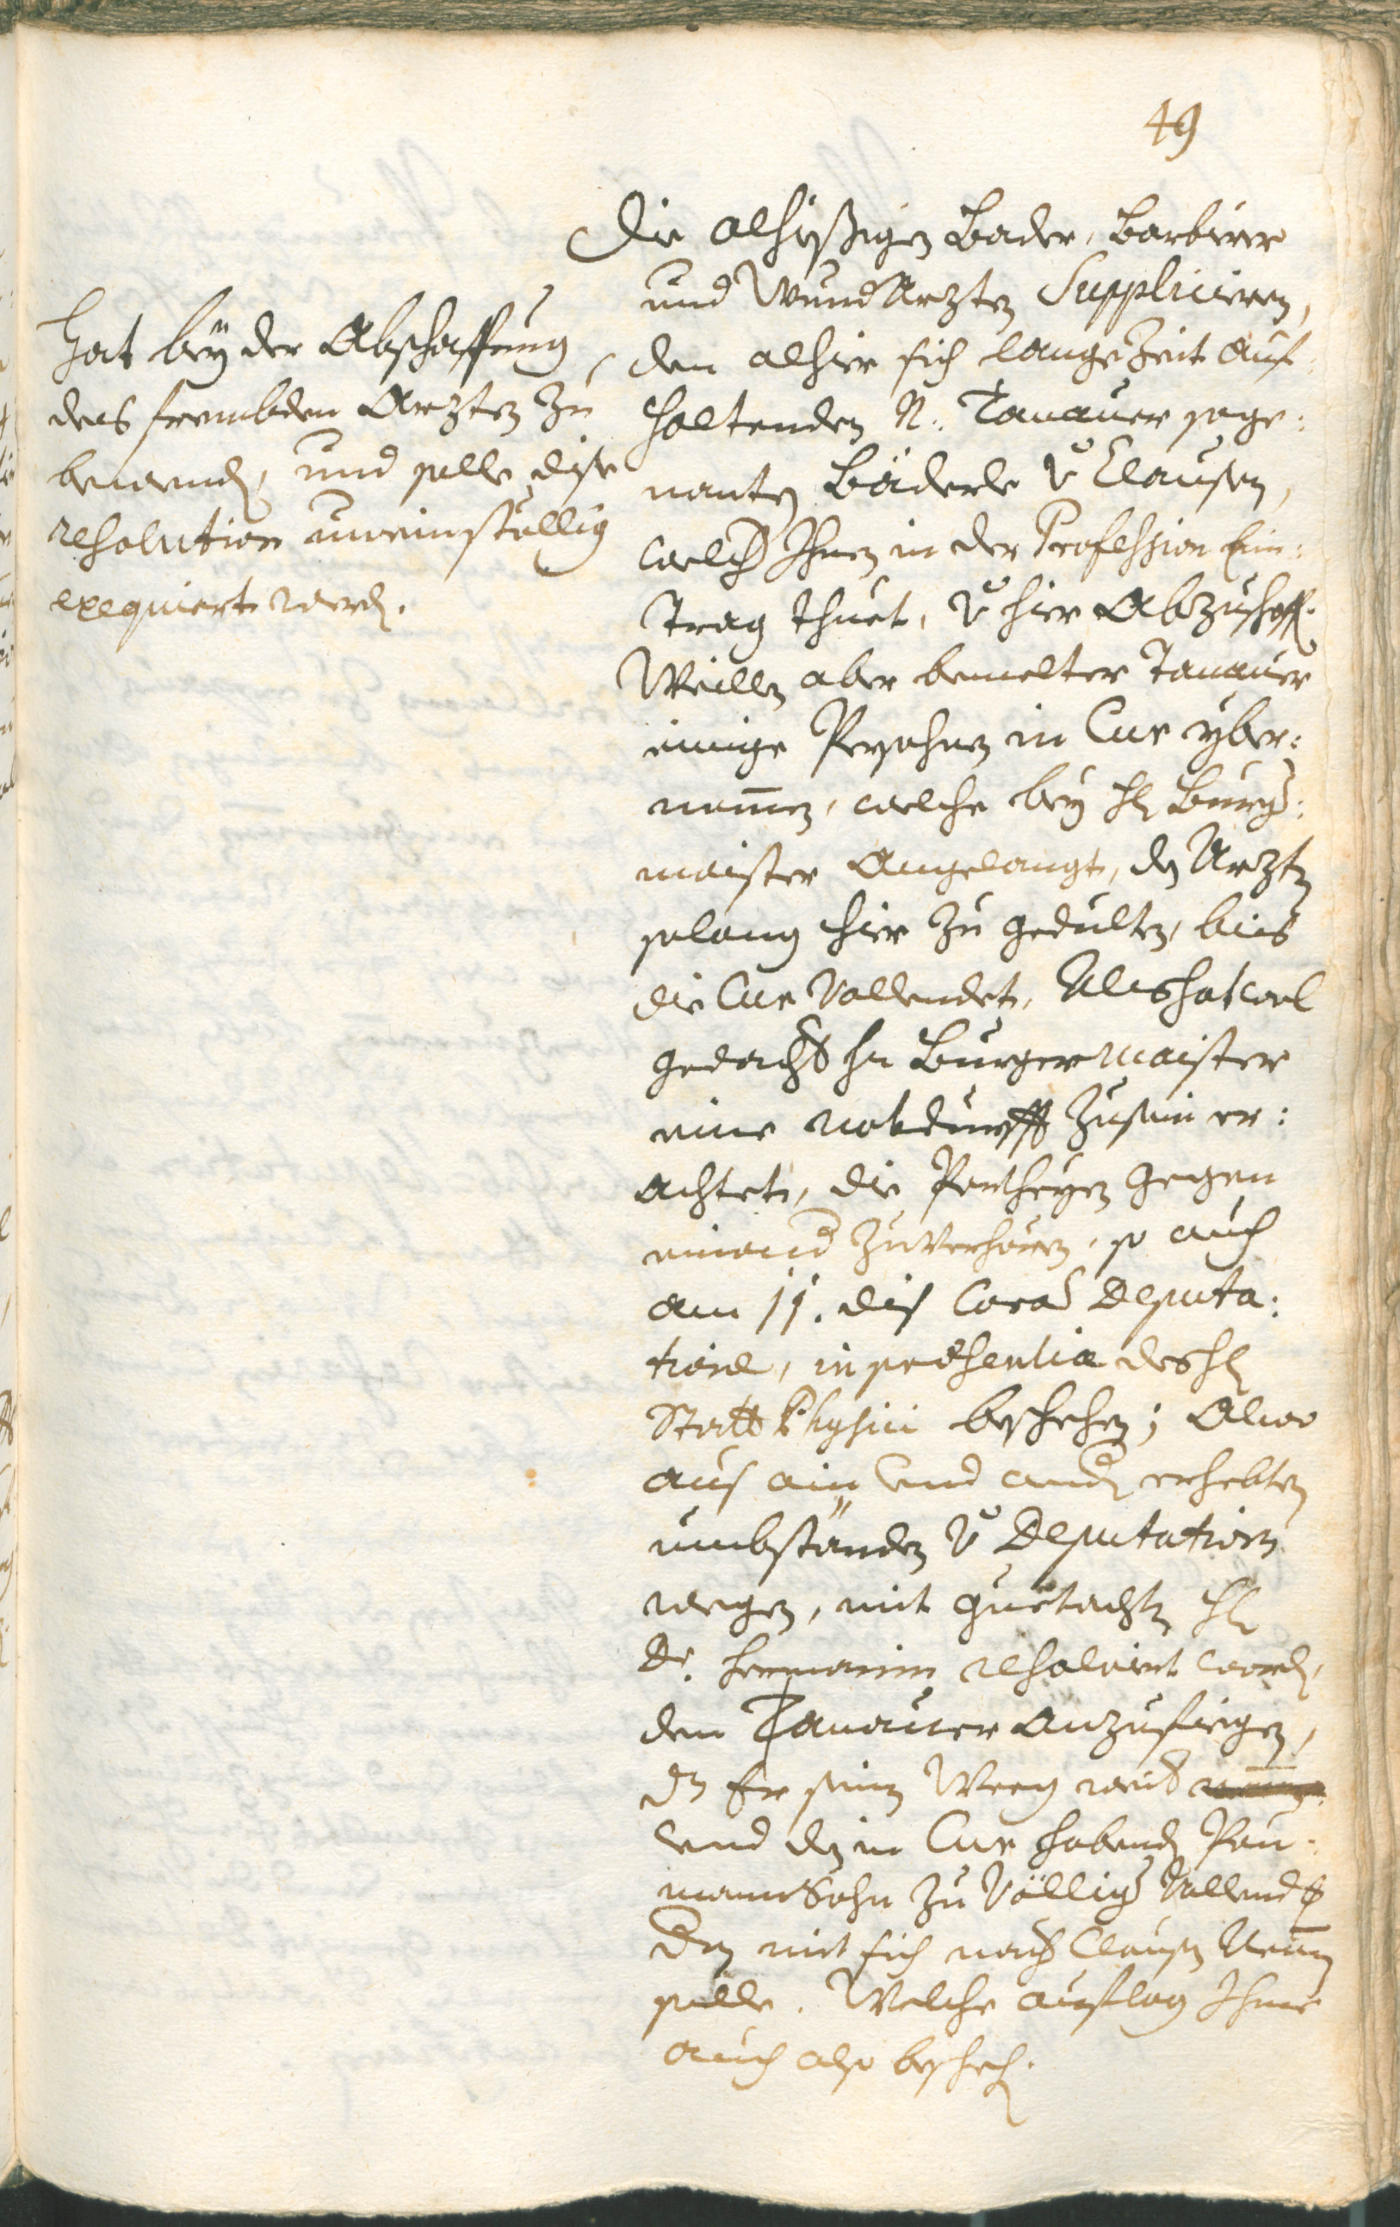 49
Die alhießigen Bader, Barbierer
und WundArzten Supplicieren,
den alhier sich lange Zeit auf:
haltenden N. Tanauer soge:
nanten Bäderle v Clausen,
welch Ihnen in der Profession Ein:
trag thuet, v hier Abzuschaff.
Weillen aber bemelter Tanauer
einige Persohnen in Cur yber:
nomen, welche bey H Burg:
maister Angelangt, dn Arzten
solang hier zu gedulten, bies
die Cur Vollendet, Als hat wol
gedacht Hr Burgermaister
eine notdurfft zusein er:
achtet, die Partheyen gegen
einand zuverhören, so auch
am 11. dis Corã Deputa:
tione, in præsentia des H
Statt Physici beschehen; Alwo
aus ain und andn erhebten
umbständen v Deputation
wegen, mit guetachten H
Dr. Hermanin resolviert word,
dem Tanauer anzufiegen,
dz Er seinen Weeg weid
und dn in Cur habendn Pau:
mann Sohn zu völlig Vollend
Den mit sich nach Clausen Nemen
solle. Welche auflag Ihme
auch also bescheh.
Hat bey der Abschaffung
des frembden Arzten zu
bewendn, und solle dise
resolution uneinstellig
exequiert werdn.